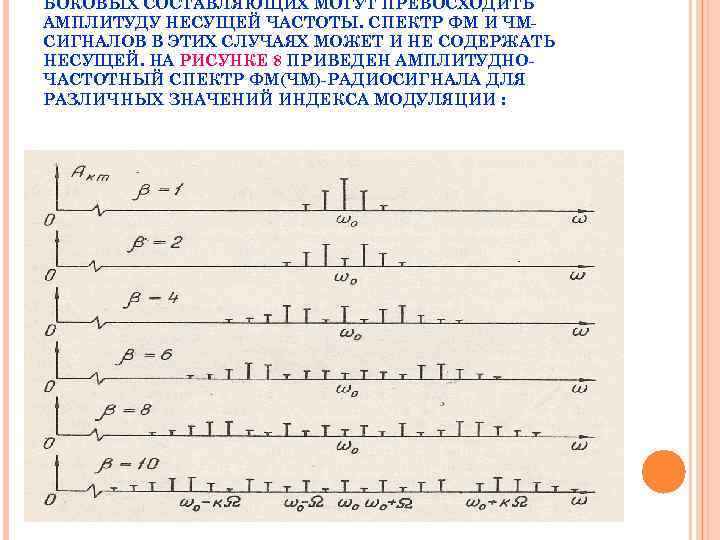 БОКОВЫХ СОСТАВЛЯЮЩИХ МОГУТ ПРЕВОСХОДИТЬ
АМПЛИТУДУ НЕСУЩЕЙ ЧАСТОТЫ. СПЕКТР ФМ И ЧМ-
СИГНАЛОВ В ЭТИХ СЛУЧАЯХ МОЖЕТ И НЕ СОДЕРЖАТЬ
НЕСУЩЕЙ. НА РИСУНКЕ 8 ПРИВЕДЕН АМПЛИТУДНО-
ЧАСТОТНЫЙ СПЕКТР ФМ(ЧМ)-РАДИОСИГНАЛА ДЛЯ
РАЗЛИЧНЫХ ЗНАЧЕНИЙ ИНДЕКСА МОДУЛЯЦИИ :
Aкm β = 1
0 ω₀ ω
β = 2
0 ω₀ ω
β = 4
0 ω₀ ω
β = 6
0 ω₀ ω
β = 8
0 ω₀ ω
β = 10
0 ω₀-кΩ ω₀-Ω ω₀ ω₀+Ω ω₀+кΩ ω